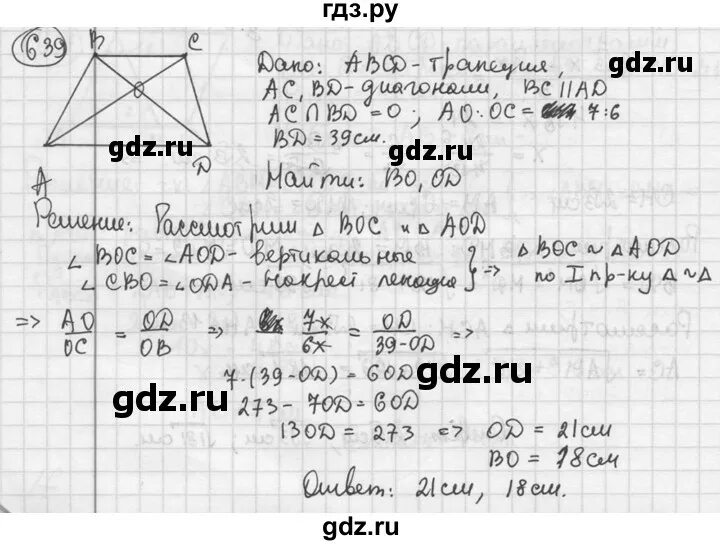 гдз.ру
639
B C
O
A D
Дано: ABCD - трапеция,
AC, BD - диагонали, BC ∥ AD
AC ∩ BD = O; AO:OC = 7:6
BD = 39см.
Найти: BO, OD
gdz.ru gdz.ru
Решение: Рассмотрим △ BOC и △ AOD
∠ BOC = ∠AOD - вертикальные
∠ CBO = ∠ODA - накрест лежащие } => △ BOC ~ △ AOD
по I пр-ку △ ~ △
=> AO/OC = OD/OB => 7x/6x = OD/(39-OD) =>
7·(39-OD) = 6OD
gdz.ru gdz.ru
273 - 7OD = 6OD
13OD = 273 => OD = 21см
BO = 18см
Ответ: 21см, 18см.
gdz.ru gdz.ru